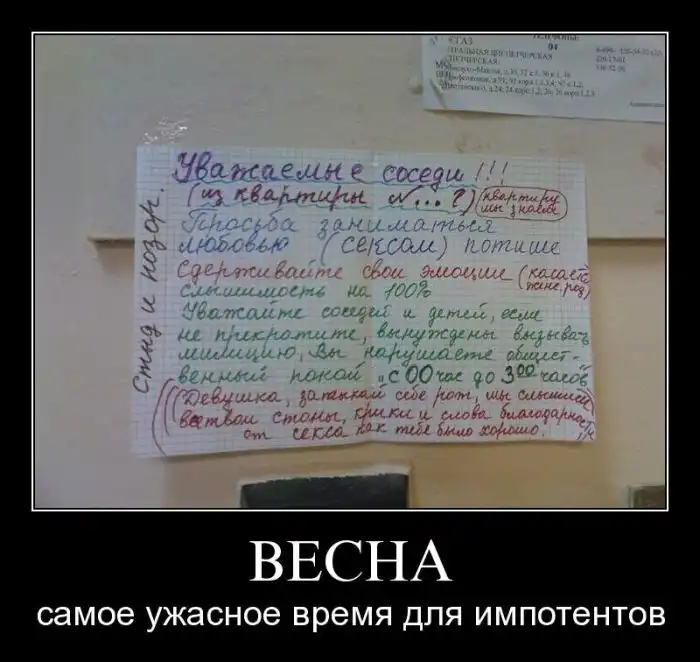 ЕГАЗ
04
ДИСПЕТЧЕРСКАЯ
Стыд и позор.
Уважаемые соседи !!!
(из квартиры N...?) (квартиру мы знаем)
Просьба заниматься
любовью (сексом) потише
Сдерживайте свои эмоции (касается женс. род)
слышимость на 100%
Уважайте соседей и детей, если
не прекратите, вынуждены вызывать
милицию, Вы нарушаете общест-
венный покой "с 00 час до 3 00 часов"
(Девушка, затыкай себе рот, мы слышим
все твои стоны, крики и слова благодарности
от секса как тебе было хорошо.
ВЕСНА
самое ужасное время для импотентов